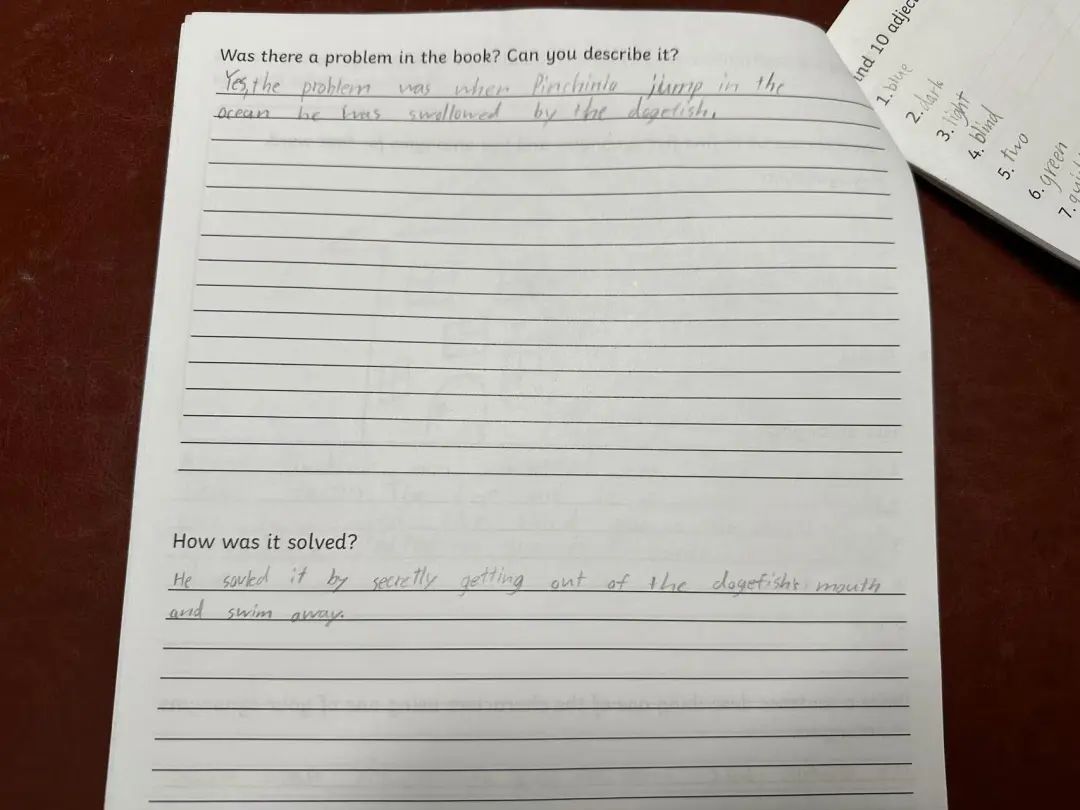 Was there a problem in the book? Can you describe it?
Yes, the problem was when Pinchinlo jump in the
ocean he was swollowed by the dogefish.
How was it solved?
He sovled it by secretly getting out of the dogefish's mouth
and swim away.
ind 10 adjec
1. blue
2. dark
3. light
4. blind
5. two
6. green
7.